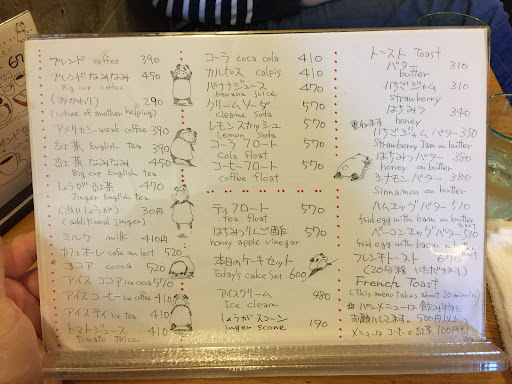 ブレンド coffee 390
ブレンド なみなみ 450
Big cup coffee
(おかわり) 290
(coffee of another helping)
アメリカン weak coffee 390
紅茶 English tea 390
紅茶 なみなみ 450
Big cup English tea
しょうが紅茶 470
Jinger English tea
(追いしょうが) 30円
(additional jinger)
ミルク milk 410円
カフェオーレ cafe au lait 520
ココア cocoa 520
アイス ココア ice cocoa 570
アイス コーヒー ice coffee 410
アイス ティ ice tea 410
トマトジュース 410
tomato juice
コーラ coca cola 410
カルピス calpis 410
バナナジュース 470
banana juice
クリームソーダ 570
cleame soda
レモンスカッシュ 570
Lemon soda
コーラフロート 570
Cola float
コーヒーフロート 570
Coffee float
ティフロート 570
tea float
はちみつりんご酢 570
honey apple vinegar
本日のケーキセット
Today's cake set 600
アイスクリーム 480
Ice cleam
しょうがスコーン 190
jnger scone
トースト Toast
バター 310
butter
いちごジャム 310
strawberry
はちみつ 340
honey
いちごジャムバター 350
Strawberry Jam on butter
はちみつバター 380
honey on butter
シナモンバター 380
Sinnamon on butter
ハムエッグバター 510
frid egg with ham on butter
ベーコンエッグバター 510
frid egg with bacon on butter
フレンチトースト 670
(20分程いただきます)
French Toast
(This menu takes about 20 minuits)
パンメニューは飲み物と
お願いします。500円以上の
メニューはコーヒーか紅茶100円引